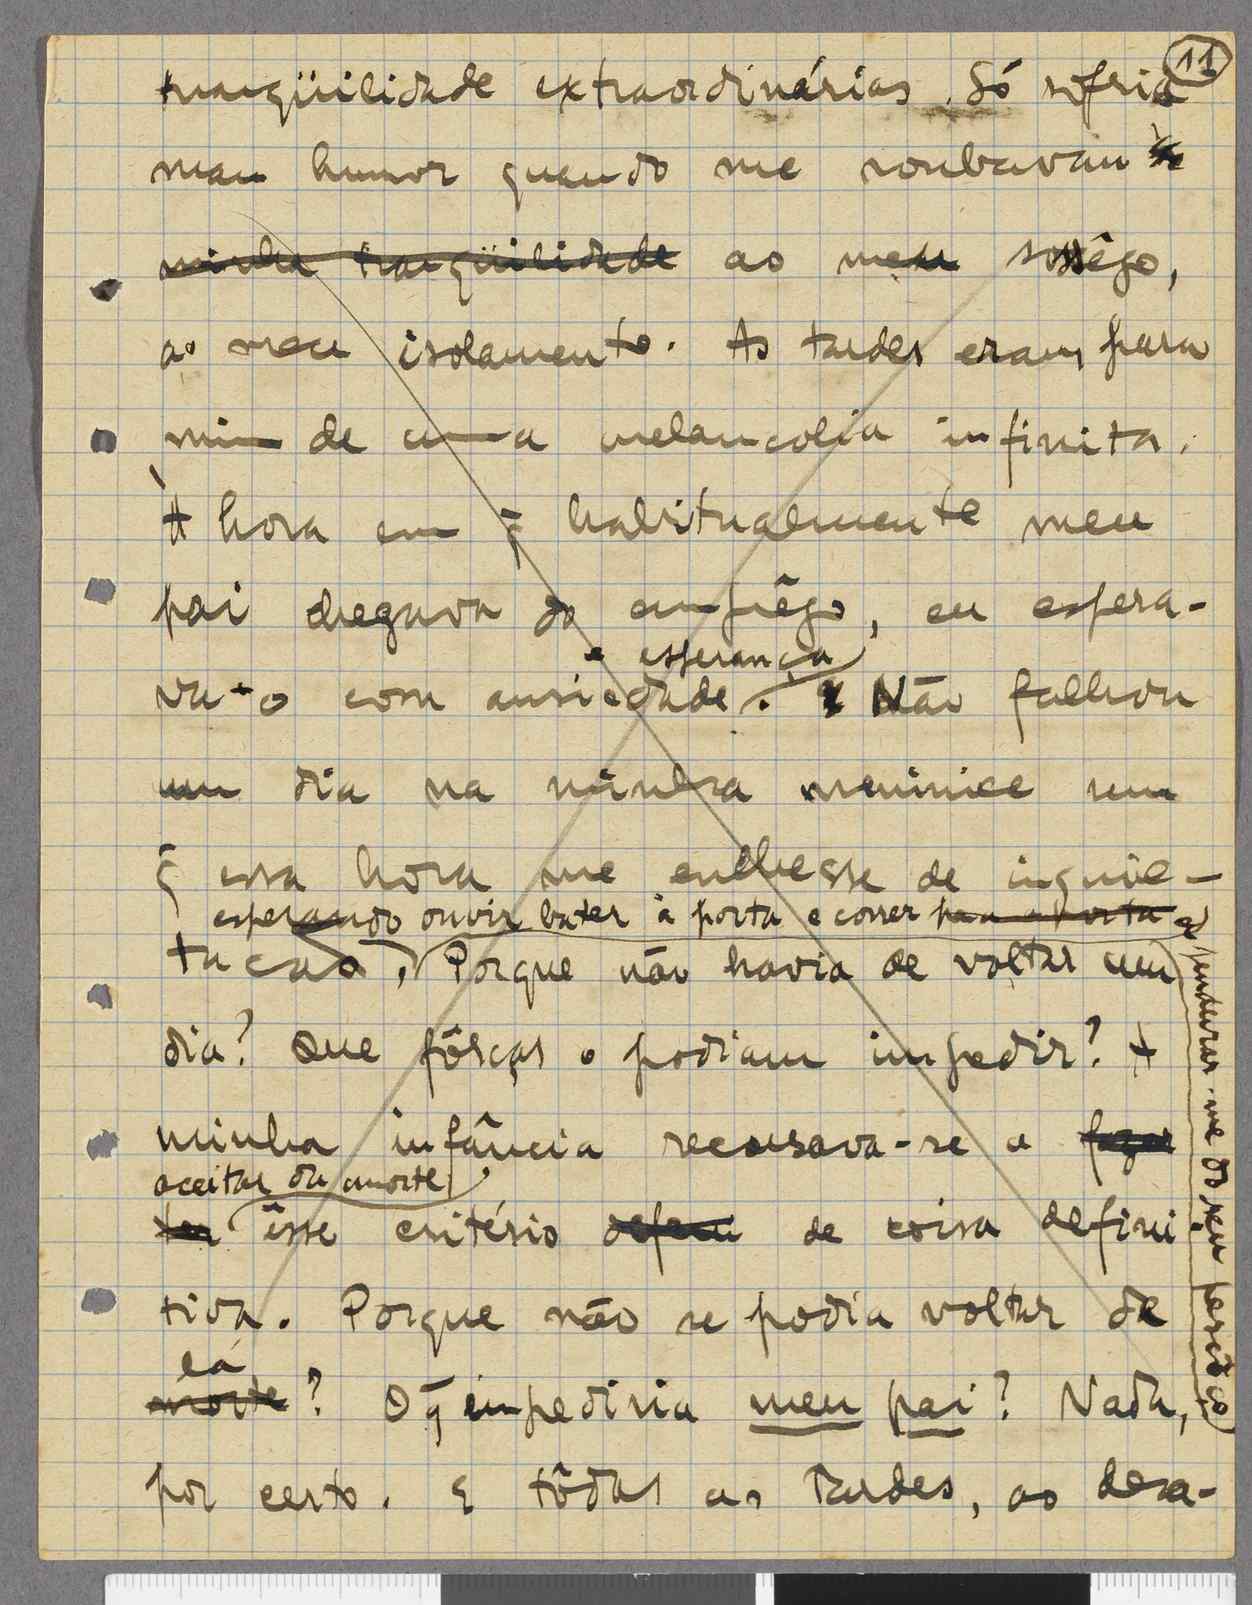 11
tranqüilidade extraordinárias. Só sofria
mau humor quando me roubavam
minha tranqüilidade ao meu sossêgo,
ao meu isolamento. As tardes eram para
mim de uma melancolia infinita.
À hora em q̃ habitualmente meu
pai chegava do emprêgo, eu espera-
e esperança
va-o com ansiedade. Não falhou
um dia na minha meninice sem
q̃ essa hora me enchesse de inquie-
esperando ouvir bater à porta e correr para a porta e
tação. Porque não havia de voltar um
pendurar-me do seu pescôço
dia? Que fôrças o podiam impedir? A
minha infância recusava-se a fazer
aceitar da morte
ter êsse critério defini de coisa defini
tiva. Porque não se podia voltar de
lá
morte? O q̃ impediria meu pai? Nada,
por certo. E tôdas as tardes, as deza-